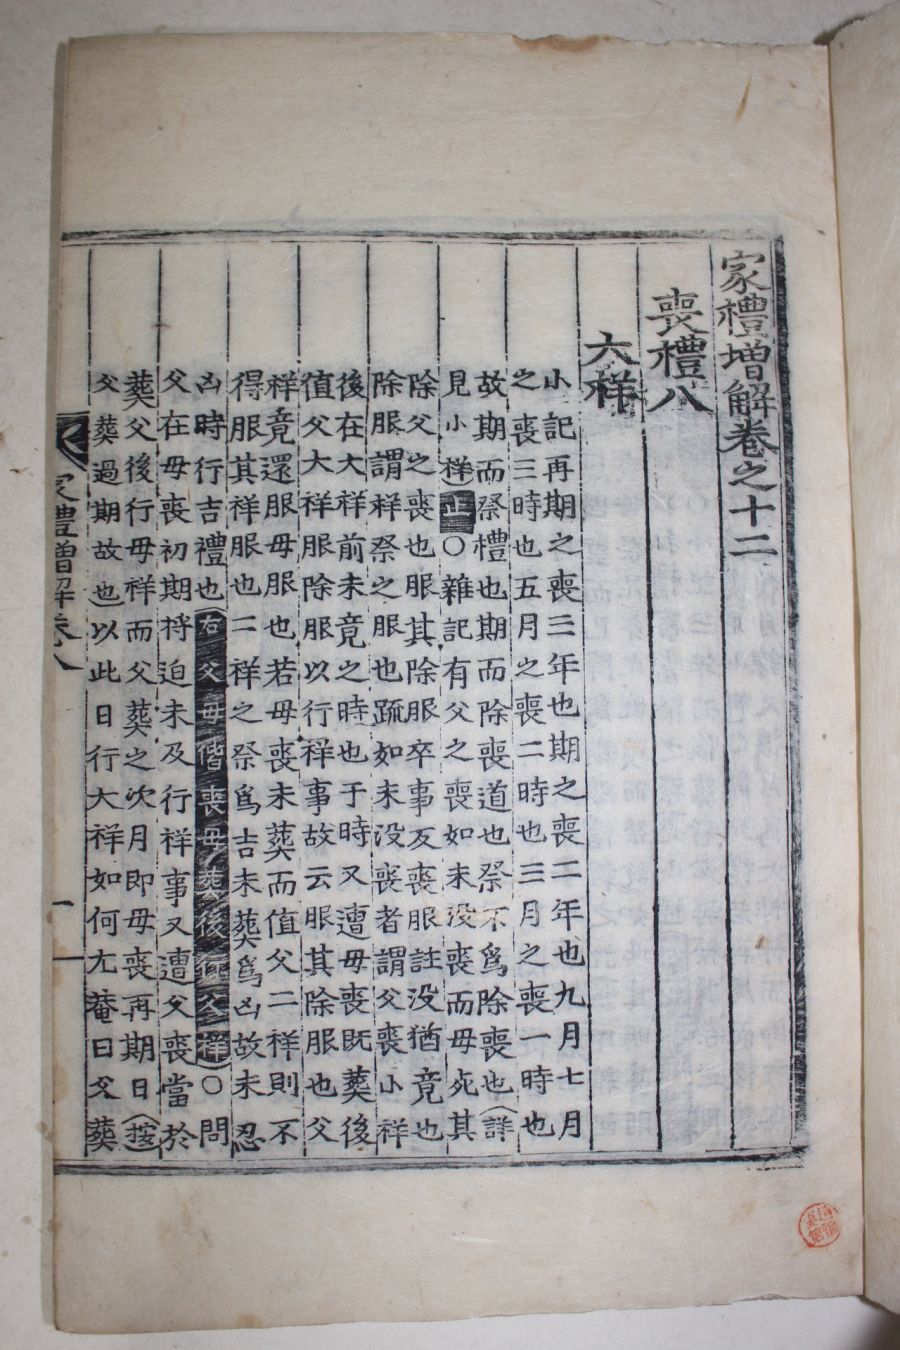 家禮增解卷之十二
喪禮八
大祥
小記再期之喪三年也期之喪二年也九月七月
之喪三時也五月之喪二時也三月之喪一時也
故期而祭禮也期而除喪道也祭不爲除喪也(詳
見小祥)正〇雜記有父之喪如未没喪而母死其
除父之喪也服其除服卒事反喪服註没猶竟也
除服謂祥祭之服也疏如未没喪者謂父喪小祥
後在大祥前未竟之時也于時又遭母喪既葬後
值父大祥服除服以行祥事故云服其除服也父
祥竟還服母服也若母喪未葬而值父二祥則不
得服其祥服也二祥之祭爲吉未葬爲凶故未忍
凶時行吉禮也(右父母偕喪母葬後行父祥)〇問
父在母喪初期將迫未及行祥事又遭父喪當於
葬父後行母祥而父葬之次月即母喪再期日(按
父葬過期故也)以此日行大祥如何尤菴曰父葬
家禮增解卷八
一